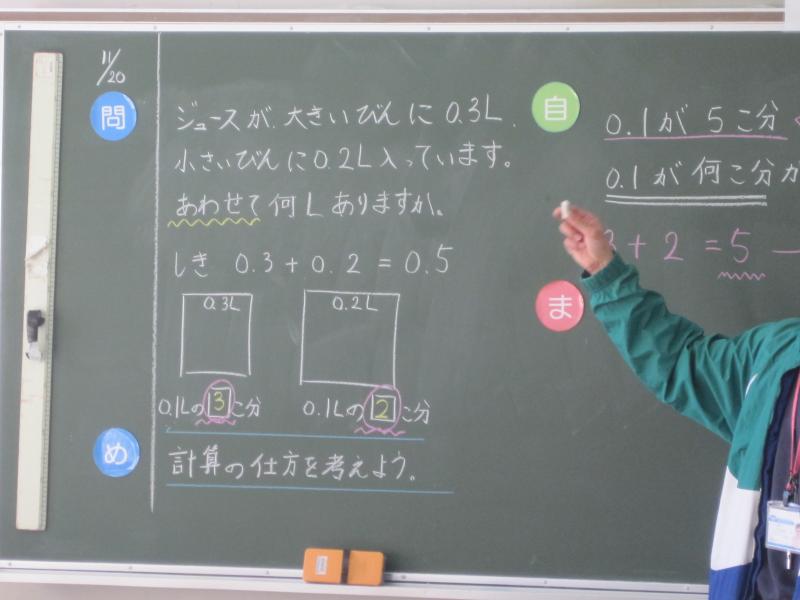 11/20
問
ジュースが、大きいびんに 0.3L、
小さいびんに0.2L入っています。
あわせて何Lありますか。
しき 0.3+0.2=0.5
0.3L 0.2L
0.1Lの3こ分 0.1Lの2こ分
め
計算の仕方を考えよう。
自
0.1が5こ分
0.1が何こ分か
+2=5
ま